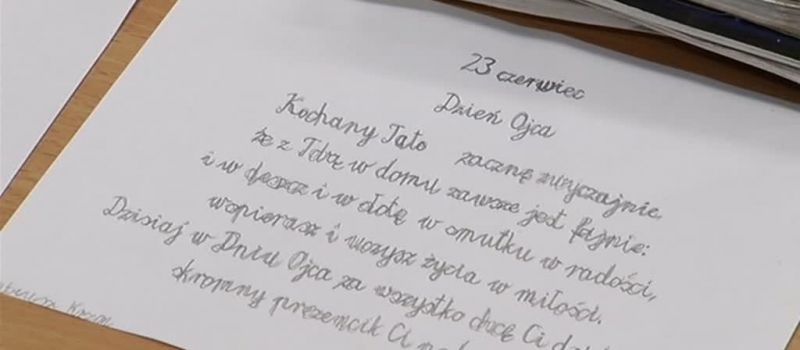 23 czerwiec
Dzień Ojca
Kochany Tato zacznę zwyczajnie
że z Tobą w domu zawsze jest fajnie:
i w deszcz i w słotę w smutku w radości,
wspierasz i uczysz życia w miłości.
Dzisiaj w Dniu Ojca za wszystko chcę Ci
skromny prezencik Ci